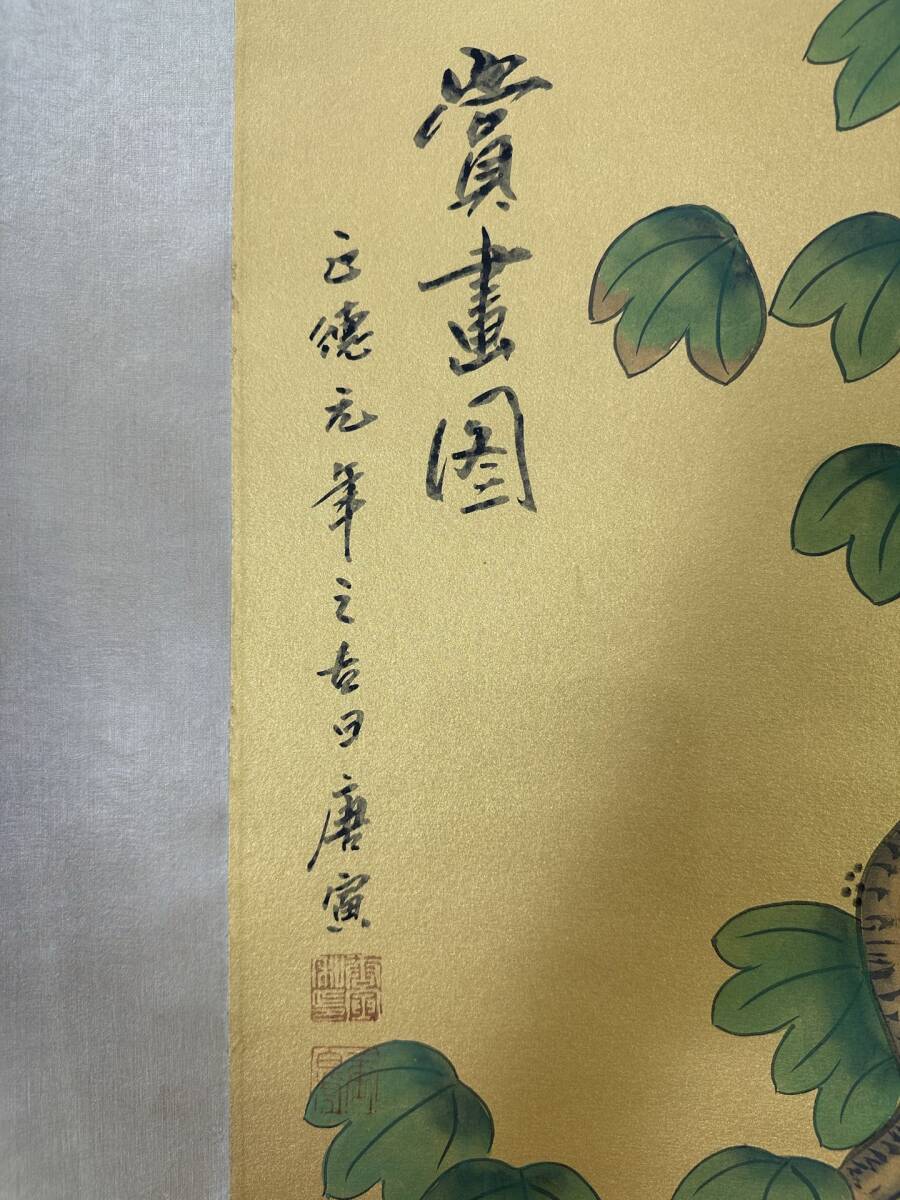 賞畫图
正德元年之吉日唐寅